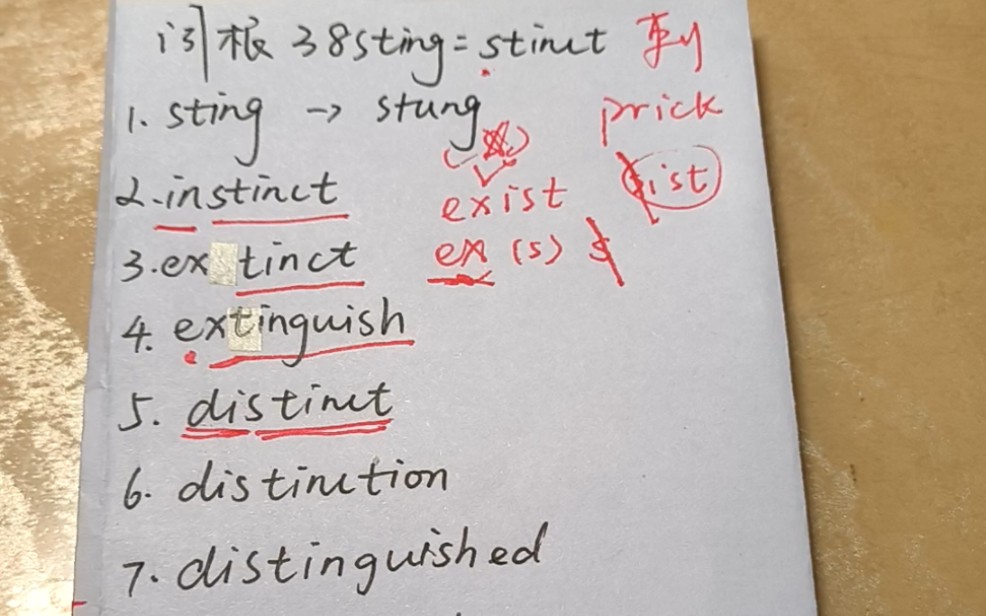 词根 38 sting = stinct 刺
1. sting → stung prick
2. instinct exist sist
3. extinct ex (s) s
4. extinguish
5. distinct
6. distinction
7. distinguished